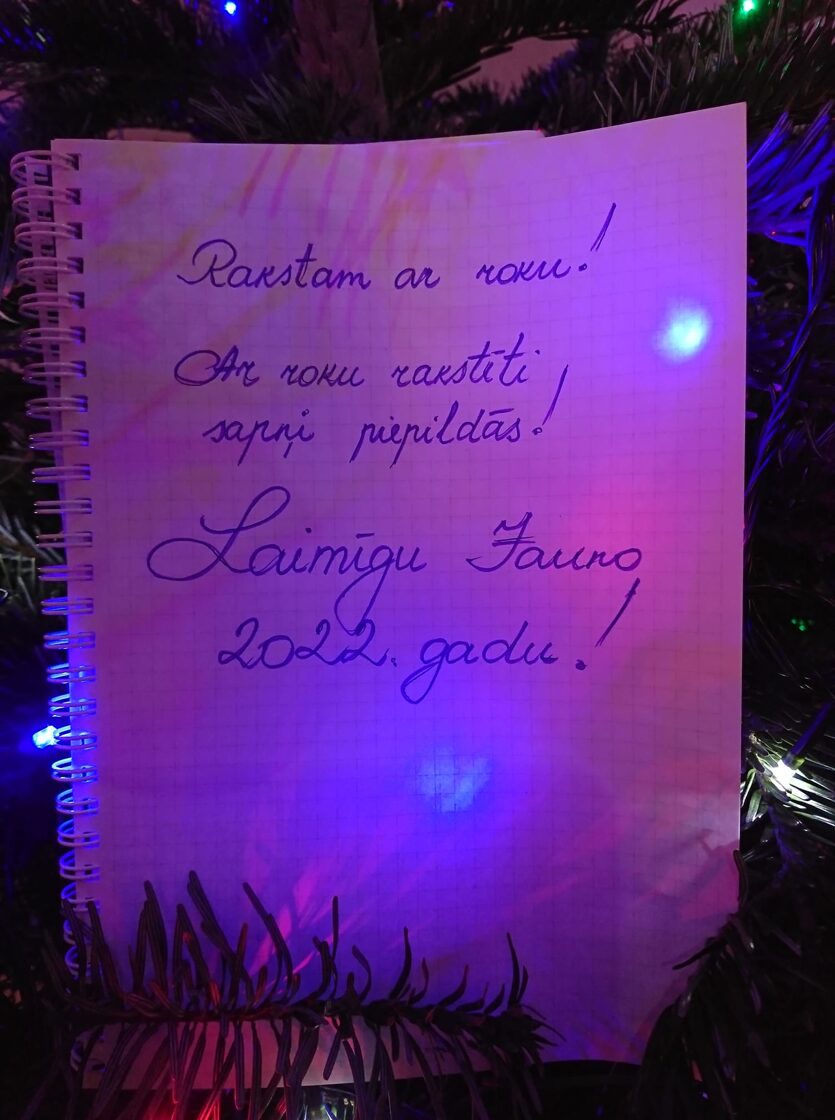 Rakstam ar roku!
Ar roku rakstīti
sapņi piepildās!
Laimīgu Jauno
2022. gadu!